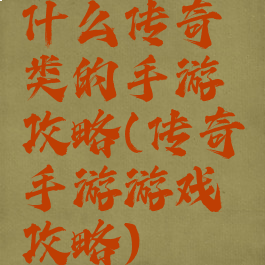 什么传奇
类的手游
攻略(传奇
手游游戏
攻略)